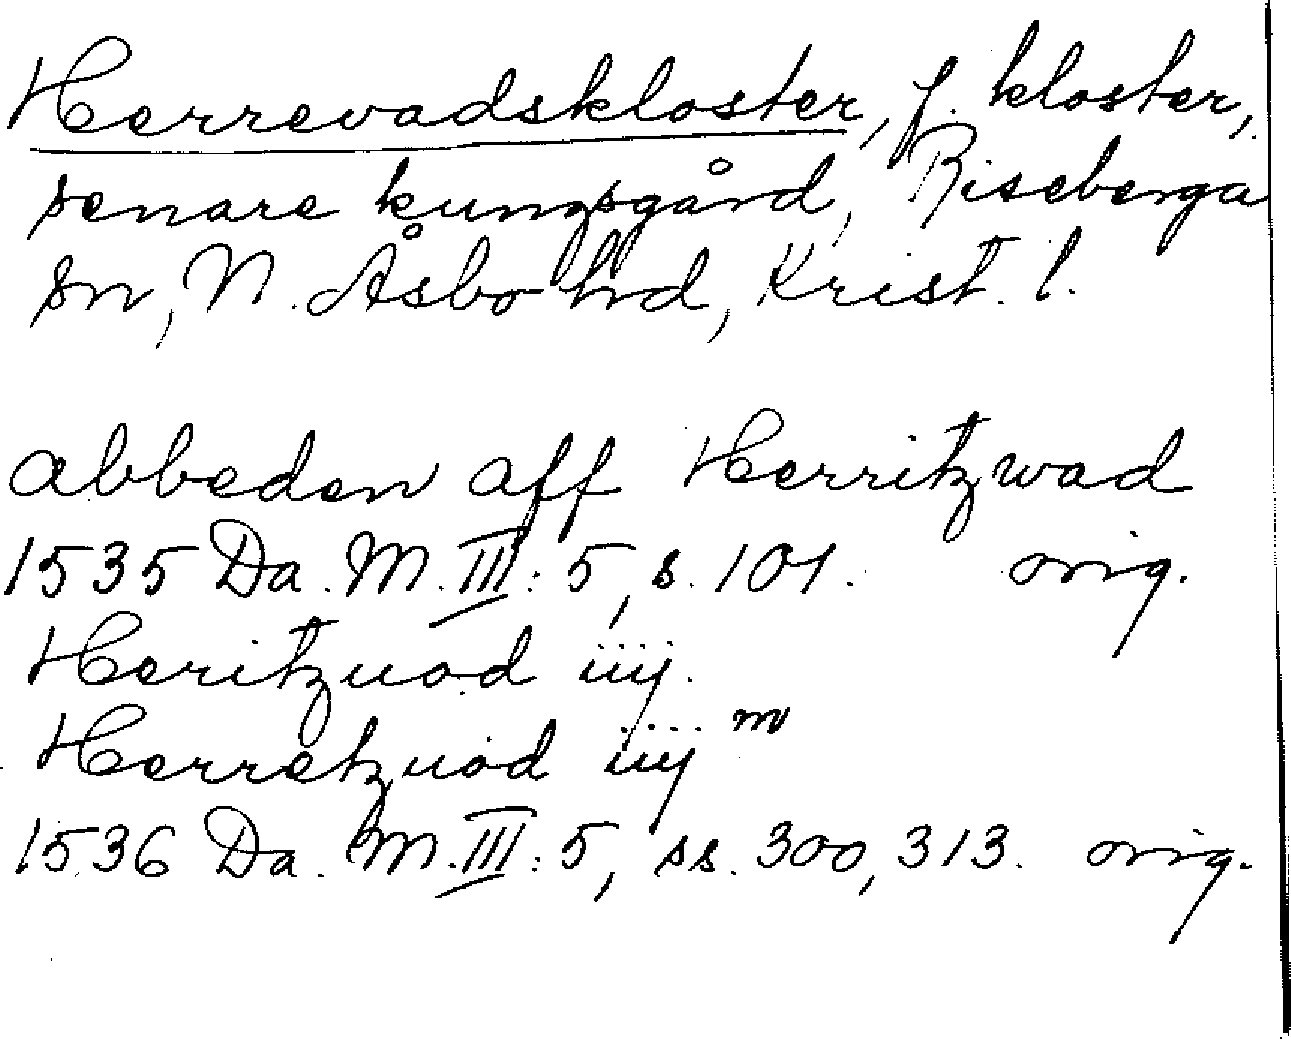 Herrevadskloster, f. kloster,
senare kungsgård, Riseberga
sn, N. Åsbo hd, Krist. l.
abbeden aff Herritzwad
1535 Da. M. III: 5, s. 101. orig.
Heritzuad iiij.
Herretzuad iiij m
1536 Da. M. III: 5, ss. 300, 313. orig.